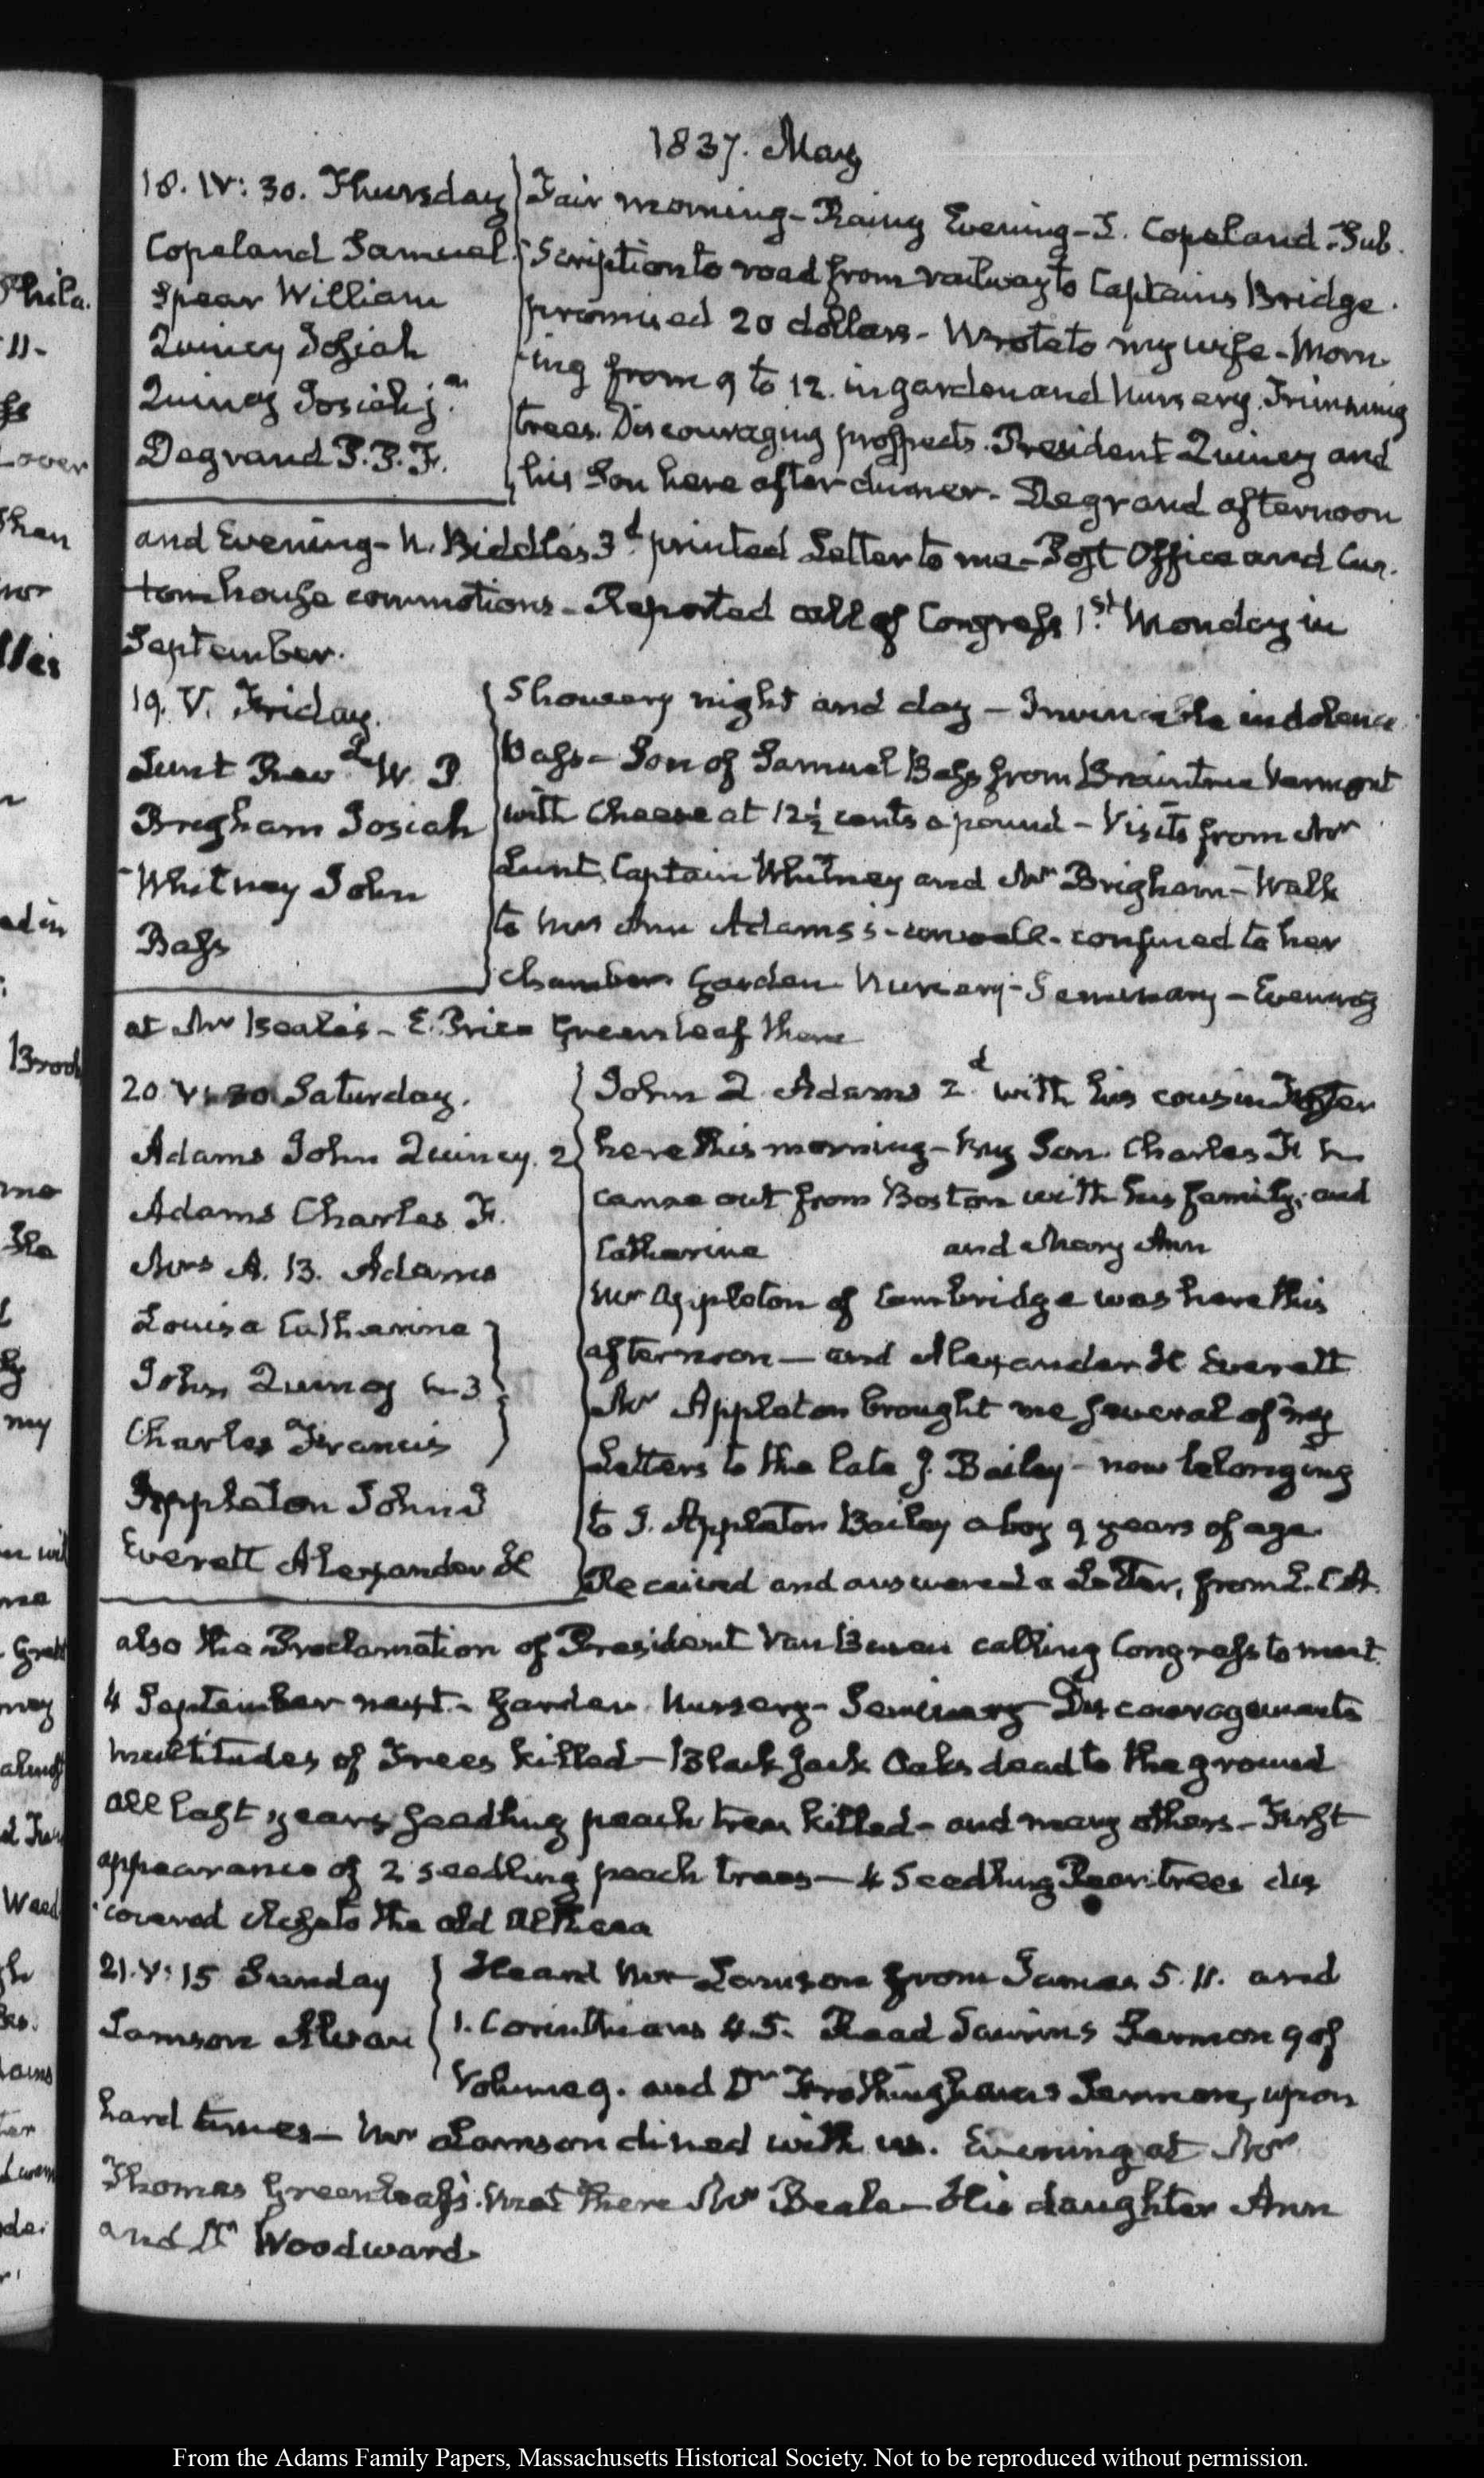 1837. May
18. IV: 30. Thursday
Copeland Samuel
Spear William
Quincy Josiah
Quincy Josiah j.r
Degrand P. P. F.
Fair morning - Rainy Evening - S. Copeland. Sub-
scription to road from railway to Captains Bridge.
promised 20 dollars - Wrote to my wife - Morn-
ing from 9 to 12. in garden and Nursery. Trimming
trees. Discouraging prospects. President Quincy and
his Son here after dinner - Degrand afternoon
and Evening - N. Biddle's 3d printed Letter to me - Post Office and Cus-
tom house commotions - Reported call of Congress 1st Monday in
September.
19. V. Friday.
Lunt Revd W. P.
Brigham Josiah
Whitney John
Bass
Showery night and day - Invincible indolence
Bass - Son of Samuel Bass from Braintree Vermont
with Cheese at 12½ cents a pound - Visits from Mr
Lunt, Captain Whitney and Mr Brigham - Walk
to Mrs Ann Adams's - unwell - confined to her
chamber Garden Nursery - Seminary - Evening
at Mr Beale's - E. Price Greenleaf there
20. V: 30 Saturday.
Adams John Quincy. 2
Adams Charles F.
Mrs A. B. Adams
Louisa Catharine
John Quincy 3
Charles Francis
Appleton John J
Everett Alexander H
John Q. Adams 2d with his cousin Foster
here this morning - My Son Charles F
came out from Boston with his family, and
Catharine and Mary Ann
Mr Appleton of Cambridge was here this
afternoon - and Alexander H Everett
Mr Appleton brought me several of my
Letters to the late J. Bailey - now belonging
to J. Appleton Bailey a boy 9 years of age
Received and answered a Letter, from L. C. A.
also the Proclamation of President Van Buren calling Congress to meet
4 September next. - Garden Nursery - Seminary Discouragements
Multitudes of Trees killed - Black Jack Oaks dead to the ground
All last years seedling peach trees killed - and many others - First
appearance of 2 seedling peach trees - 4 Seedling Pear trees dis-
covered the old Althaea
21. V: 15 Sunday
Lamson Alvan
Heard Mr Lamson from James 5. 11. and
1. Corinthians 4. 5. Read Saurins Sermon 9 of
Volume 9. and Dr Frothinghams Sermon, upon
hard times - Mr Lamson dined with us. Evening at Mr
Thomas Greenleafs. Met there Mr Beale - His daughter Ann
and Dr Woodward.
From the Adams Family Papers, Massachusetts Historical Society. Not to be reproduced without permission.